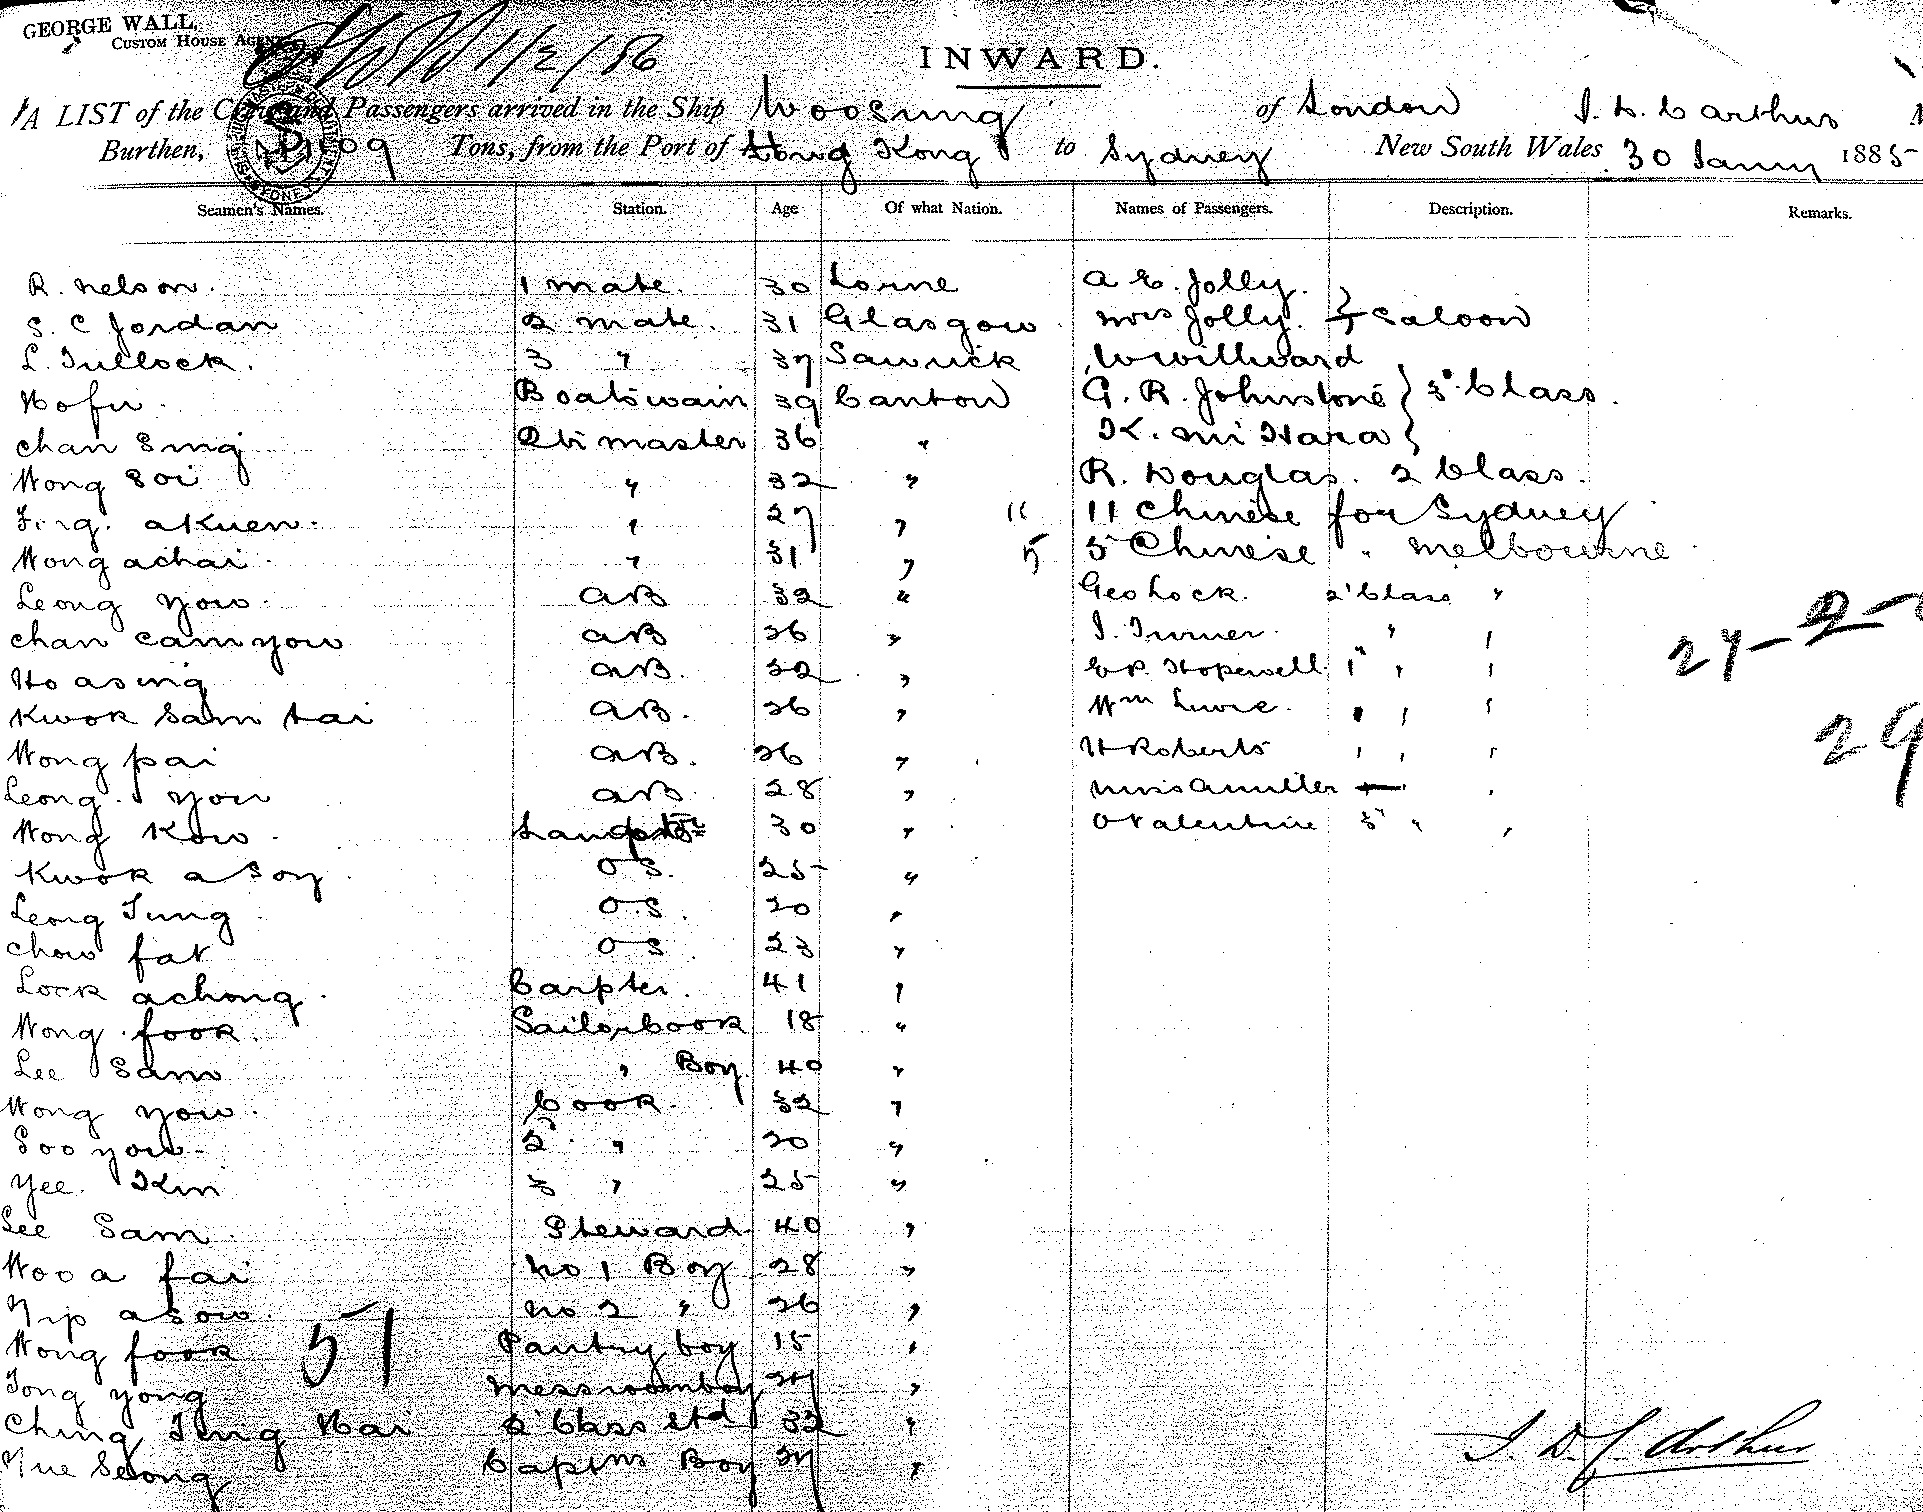 GEORGE WALL,
CUSTOM HOUSE AGENT
1/2/86
INWARD.
A LIST of the Crew and Passengers arrived in the Ship Woosung of London J. D. C Arthur
Burthen, 1109 Tons, from the Port of Hong Kong to Sydney New South Wales 30 Jany 1885
Seamen's Names. Station. Age Of what Nation. Names of Passengers. Description. Remarks.
R. Nelson. 1 mate. 30 Lorne A E. Jolly.
S. C Jordan 2 mate. 31 Glasgow Mrs Jolly. } Saloon
L. Tullock. 3 " 37 W Willward
Hofu. Boatswain 39 Canton G. R. Johnstone } 3° Class.
Chan Sing Qtr master 36 " K. Mi Hara }
Wong Soi " 32 " R. Douglas. 2 Class.
akuen. " 27 " 11 11 Chinese for Sydney
Wong achai. " 31 " 5 5 Chinese " Melbourne
Leong yow. AB 32 " Geo Lock. 2' Class "
Chan Cam yow AB 26 " J. Turner. " "
Ho asing AB. 32 " Hopewell 1" " "
27-2-
Kwok Sam tai AB. 26 " Wm " " "
Wong pai AB. 26 " H Roberts " " "
29
Leong. you AB 28 " Miss A Miller "
Wong Kow. Lamptr 30 " O Valentine 3" " "
Kwok a Soy O S. 25 "
Leong Tung O.S. 20 "
Chow fat O S 23 "
Lock achong. Carpter. 41 "
Wong fook. Sailorscook 18 "
Lee Sam " Boy 40 "
Wong yow. Cook. 32 "
Soo yow. 2 " 20 "
Yee. Kin 3 " 25 "
Lee Sam Steward. 40 "
Woo a fai No 1 Boy 28 "
Yip a sow. No 2 " 26 "
Wong fook 51 Pantry boy 15 "
Tong yong Messroomboy 27 "
Ching Ting Hai 2' Class std 32 "
Yue Seong Captns Boy 27 "
J. D. C. Arthur